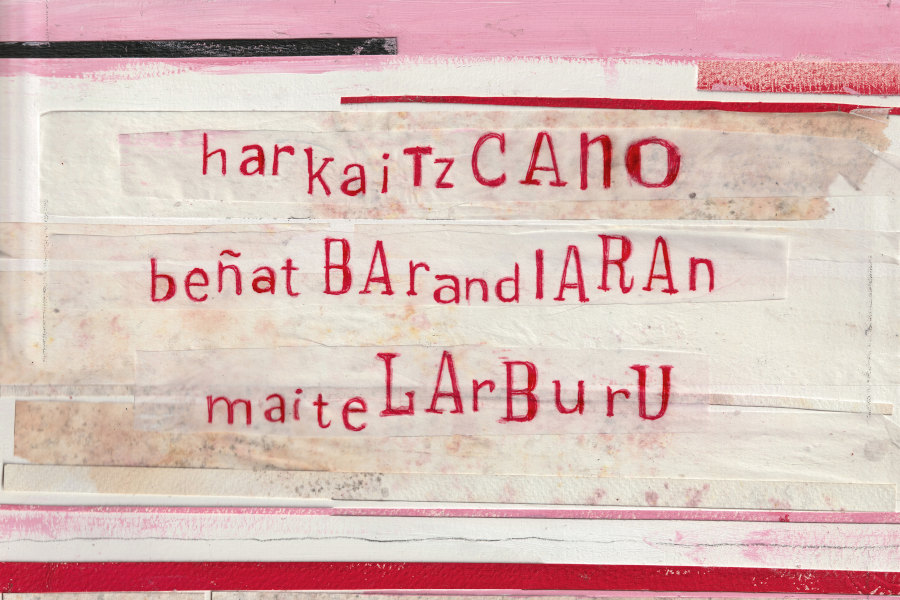 harkaitz CAno
beñat BArandIARAn
maite LArBurU